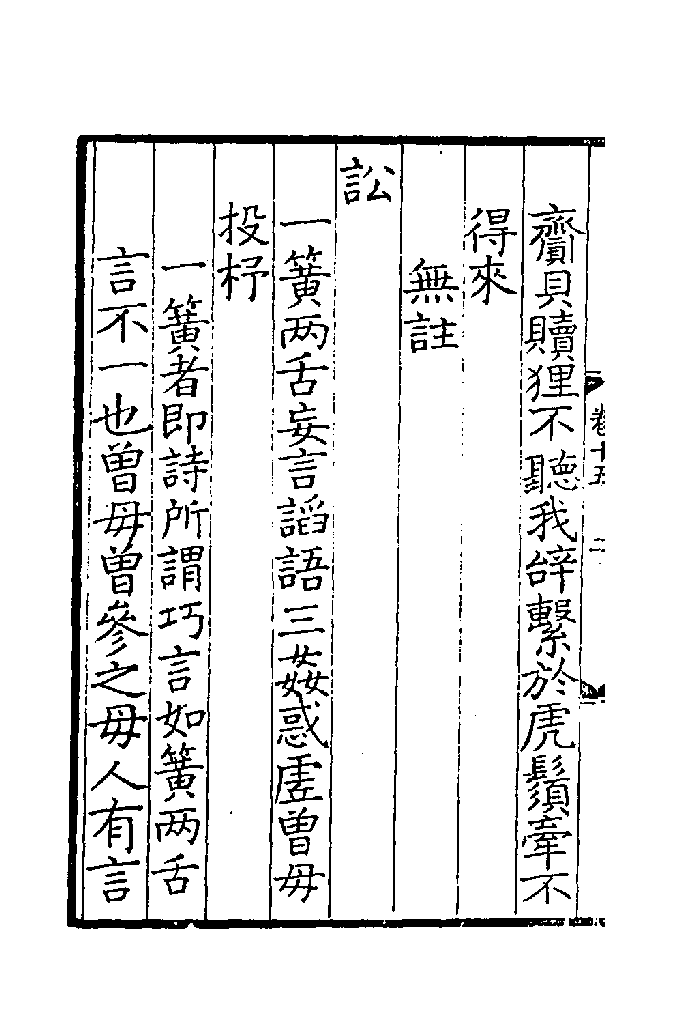 齎貝贖狸不聽我辝繫於虎鬚牽不
得來
無註
訟
一簧两舌妄言謟語三姦惑虗曽母
投杼
一簧者即詩所謂巧言如簧两舌
言不一也曽母曽參之母人有言
卷十五
二